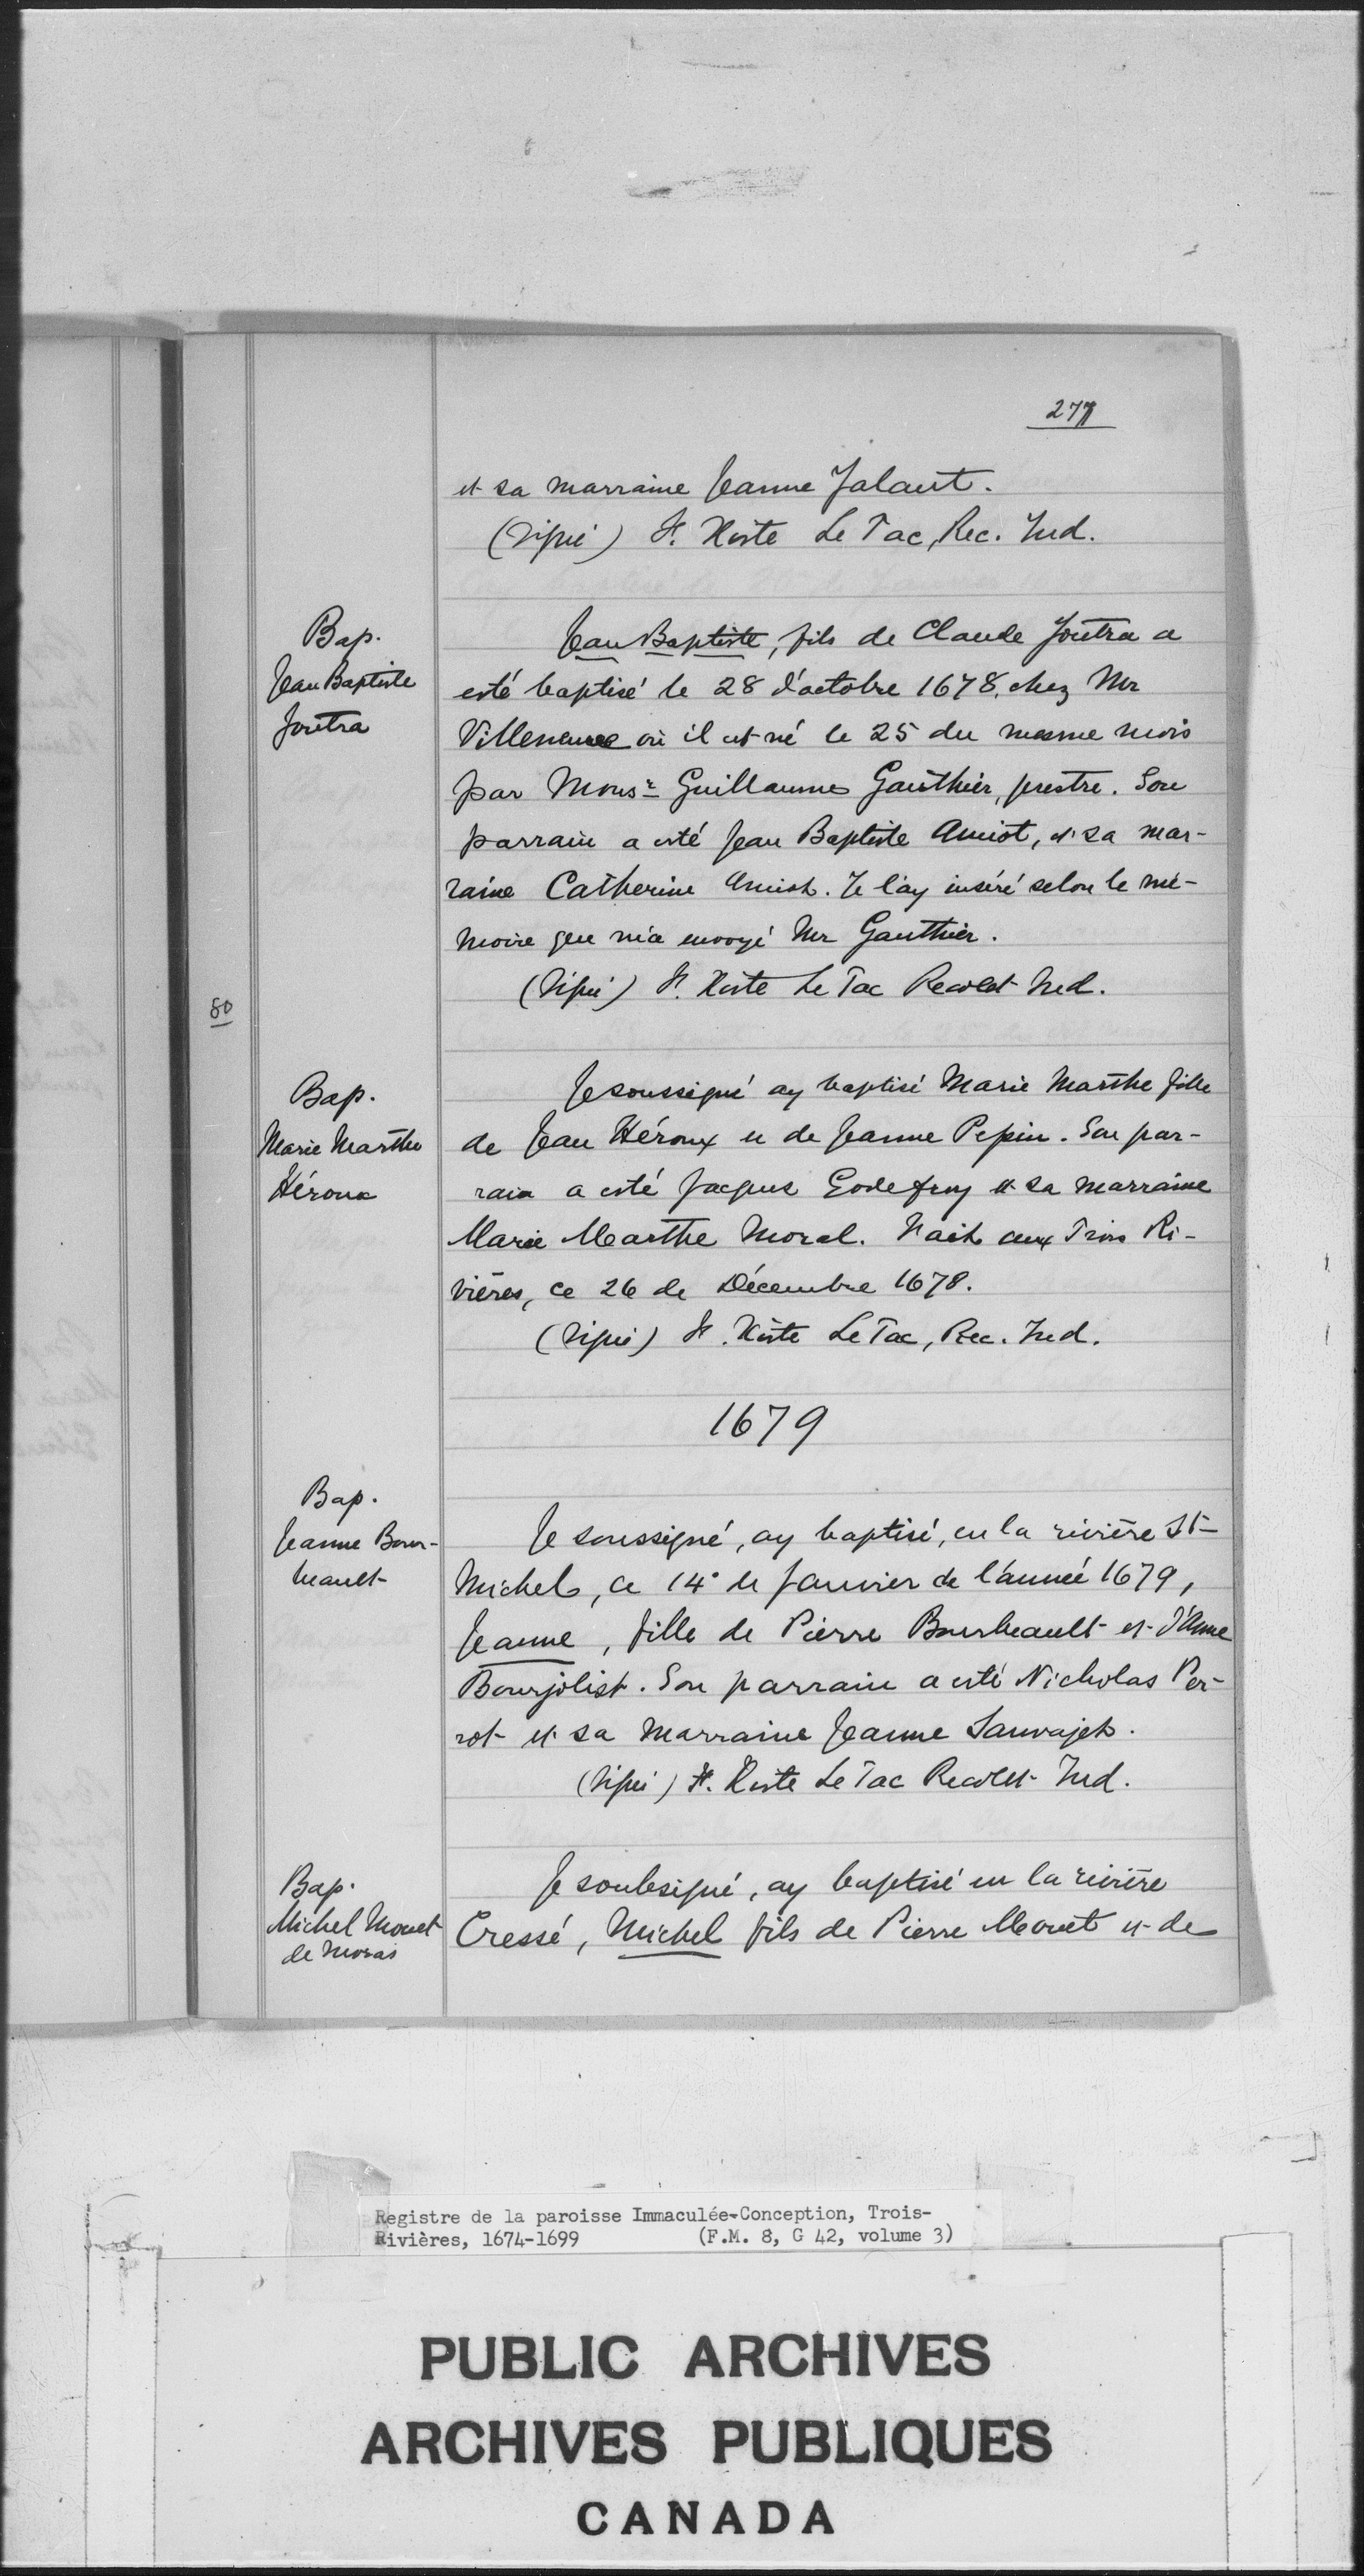 277
et sa marraine Jeanne Jalaut.
(Signé) F. Xiste Le Tac, Rec. Ind.
Bap.
Jean Baptiste
Joutra
Jean Baptiste, fils de Claude Joutra a
esté baptisé le 28 d'octobre 1678, chez Mr
Villeneuve où il est né le 25 du mesme mois
par Monsr Guillaume Gauthier, prestre. Son
parrain a esté Jean Baptiste Amiot, et sa mar-
raine Catherine Amiot. Je l'ay inséré selon le mé-
moire que m'a envoyé Mr Gauthier.
(Signé) F. Xiste Le Tac Recolet Ind.
80
Bap.
Marie Marthe
Héroux
Je soussigné ay baptisé Marie Marthe fille
de Jean Héroux et de Jeanne Pepin. Son par-
rain a esté Jacques Godefroy et sa marraine
Marie Marthe Moral. Fait aux Trois Ri-
vières, ce 26 de Décembre 1678.
(Signé) F. Xiste Le Tac, Rec. Ind.
1679
Bap.
Jeanne Bour-
beault
Je soussigné, ay baptisé, en la rivière St-
Michel, ce 14e de Janvier de l'année 1679,
Jeanne, fille de Pierre Bourbeault et d'Anne
Bourjolist. Son parrain a esté Nicholas Per-
rot et sa marraine Jeanne Sauvajet.
(Signé) F. Xiste Le Tac Recolet Ind.
Bap.
Michel Mouet
de Moras
Je soubsigné, ay baptisé en la rivière
Cressé, Michel fils de Pierre Mouet et de
Registre de la paroisse Immaculée-Conception, Trois-
Rivières, 1674-1699 (F.M. 8, G 42, volume 3)
PUBLIC ARCHIVES
ARCHIVES PUBLIQUES
CANADA